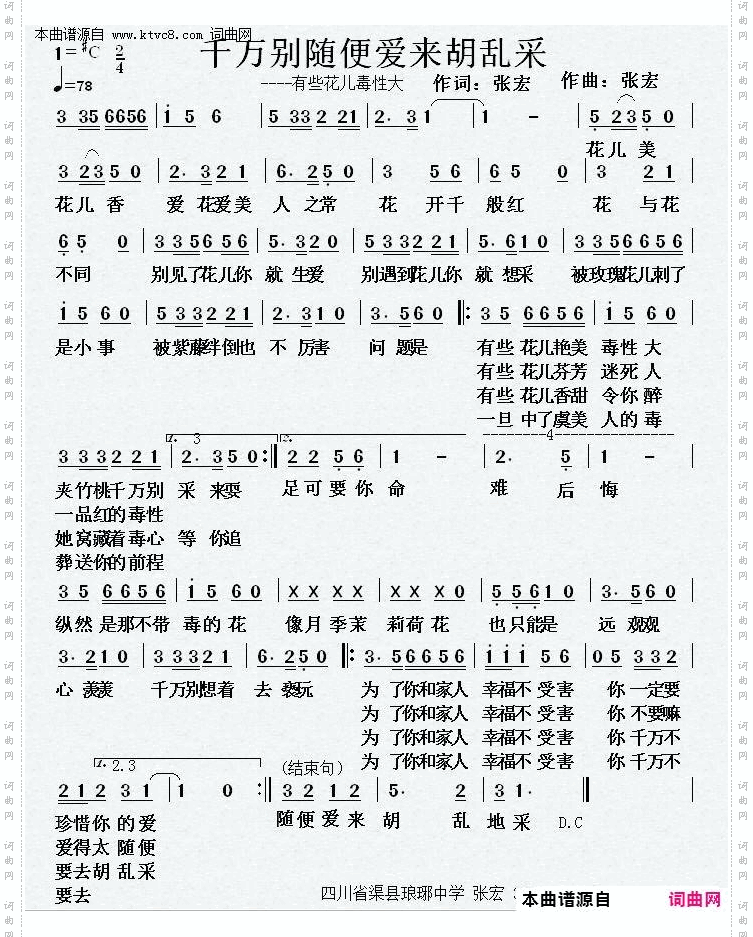 本曲谱源自 www.ktvc8.com 词曲网
千万别随便爱来胡乱采
1=#C 2/4
♩=78
----有些花儿毒性大 作词：张宏 作曲：张宏
3 35 6656 | i 5 6 | 5 33 2 21 | 2· 3 1 | 1 - | 5 235 0 |
花儿 美
3 235 0 | 2· 3 2 1 | 6· 25 0 | 3 5 6 | 6 5 0 | 3 2 1 |
花儿 香 爱 花爱美 人 之常 花 开千 般红 花 与花
6 5 0 | 3 3 5 6 5 6 | 5· 320 | 5 3 3 2 2 1 | 5· 610 | 3 3 5 6 6 5 6 |
不同 别见了花儿你 就 生爱 别遇到花儿你 就 想采 被玫瑰花儿刺了
i 5 6 0 | 5 3 3 2 2 1 | 2· 3 1 0 | 3· 5 6 0 |: 3 5 6 6 5 6 | i 5 6 0 |
是小 事 被紫藤绊倒也 不 厉害 问 题是 有些 花儿艳美 毒性 大
有些 花儿芬芳 迷死 人
有些 花儿香甜 令你 醉
一旦 中了虞美 人的 毒
1. 3 2. 4
3 3 3 2 2 1 | 2· 3 5 0 :| 2 2 5 6 | 1 - | 2· 5 | 1 - |
夹竹桃千万别 采 来耍 足可要你 命 难 后 悔
一品红的毒性
她窝藏着毒心 等 你追
葬送你的前程
3 5 6 6 5 6 | i 5 6 0 | X X X X | X X X | 5 5 6 1 0 | 3· 5 6 0 |
纵然 是那不带 毒的 花 像月 季茉 莉荷 花 也只能是 远 观观
3· 2 1 0 | 3 3 3 2 1 | 6· 2 5 0 |: 3· 5 6 6 5 6 | i i i 5 6 | 0 5 3 3 2 |
心 羡羡 千万别想着 去 亵玩 为 了你和家人 幸福不 受害 你 一定要
为 了你和家人 幸福不 受害 你 不要嘛
为 了你和家人 幸福不 受害 你 千万不
为 了你和家人 幸福不 受害 你 千万不
1. 2.3 (结束句)
2 1 2 3 1 | 1 0 :| 3 2 1 2 | 5· 2 | 3 1· ||
珍惜你 的 爱 随便 爱来 胡 乱 地 采 D.C
爱得太 随便
要去胡 乱采
要去
四川省渠县琅琊中学 张宏
本曲谱源自 词曲网
词曲网